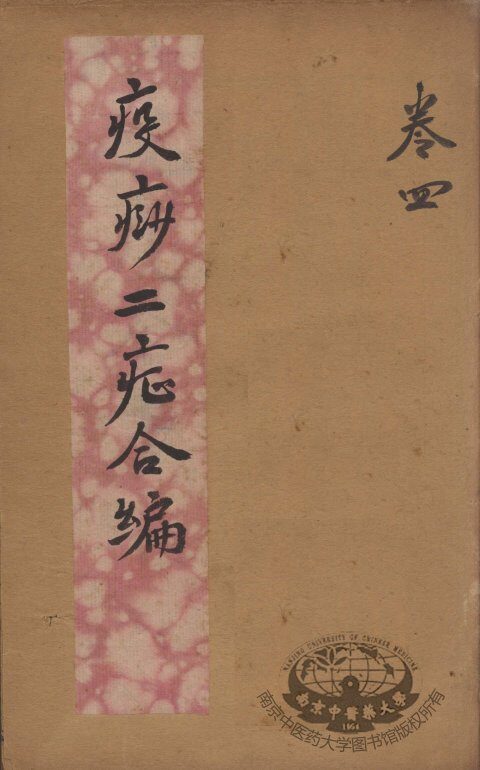 卷四
疫痧二症合编
NANJING UNIVERSITY OF CHINESE MEDICINE
南京中醫藥大學
1954
南京中医药大学图书馆版权所有